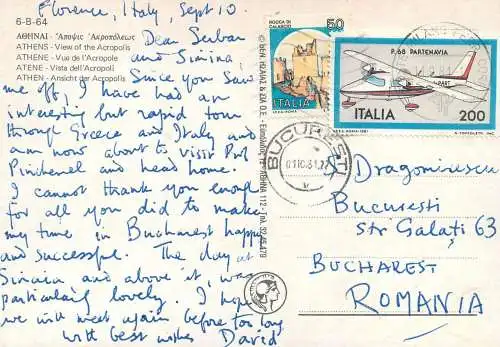 Florence, Italy, Sept 10
6-8-64
ΑΘΗΝΑΙ - Ἄποψις Ἀκροπόλεως
ATHENS - View of the Acropolis
ATHENES - Vue de l'Acropole
ATENE - Vista dell'Acropoli
ATHEN - Ansicht der Akropolis
Dear Serban
and Simina,
Since you saw
me off, I have had an
interesting but rapid tour
through Greece and Italy and
am now about to visit Prof
and head home.
I cannot thank you enough
for all you did to make
my time in Bucharest happy
and successful. The day at
Sinaia and above it, was
particularly lovely. I hope
we will meet again before too long
With best wishes David
ROCCA DI
CALASCIO
50
ITALIA
P.68 PARTENAVIA
I-PART
ITALIA 200
I.P.Z.S.-ROMA-1981
BUCUREȘTI
Dragomirescu
Bucuresti
str Galați 63
BUCHAREST
ROMANIA